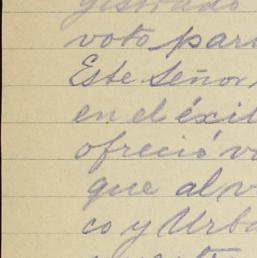 gistrado
voto para
Este Señor,
en el éxit
ofreció v
que al v
co y Urba